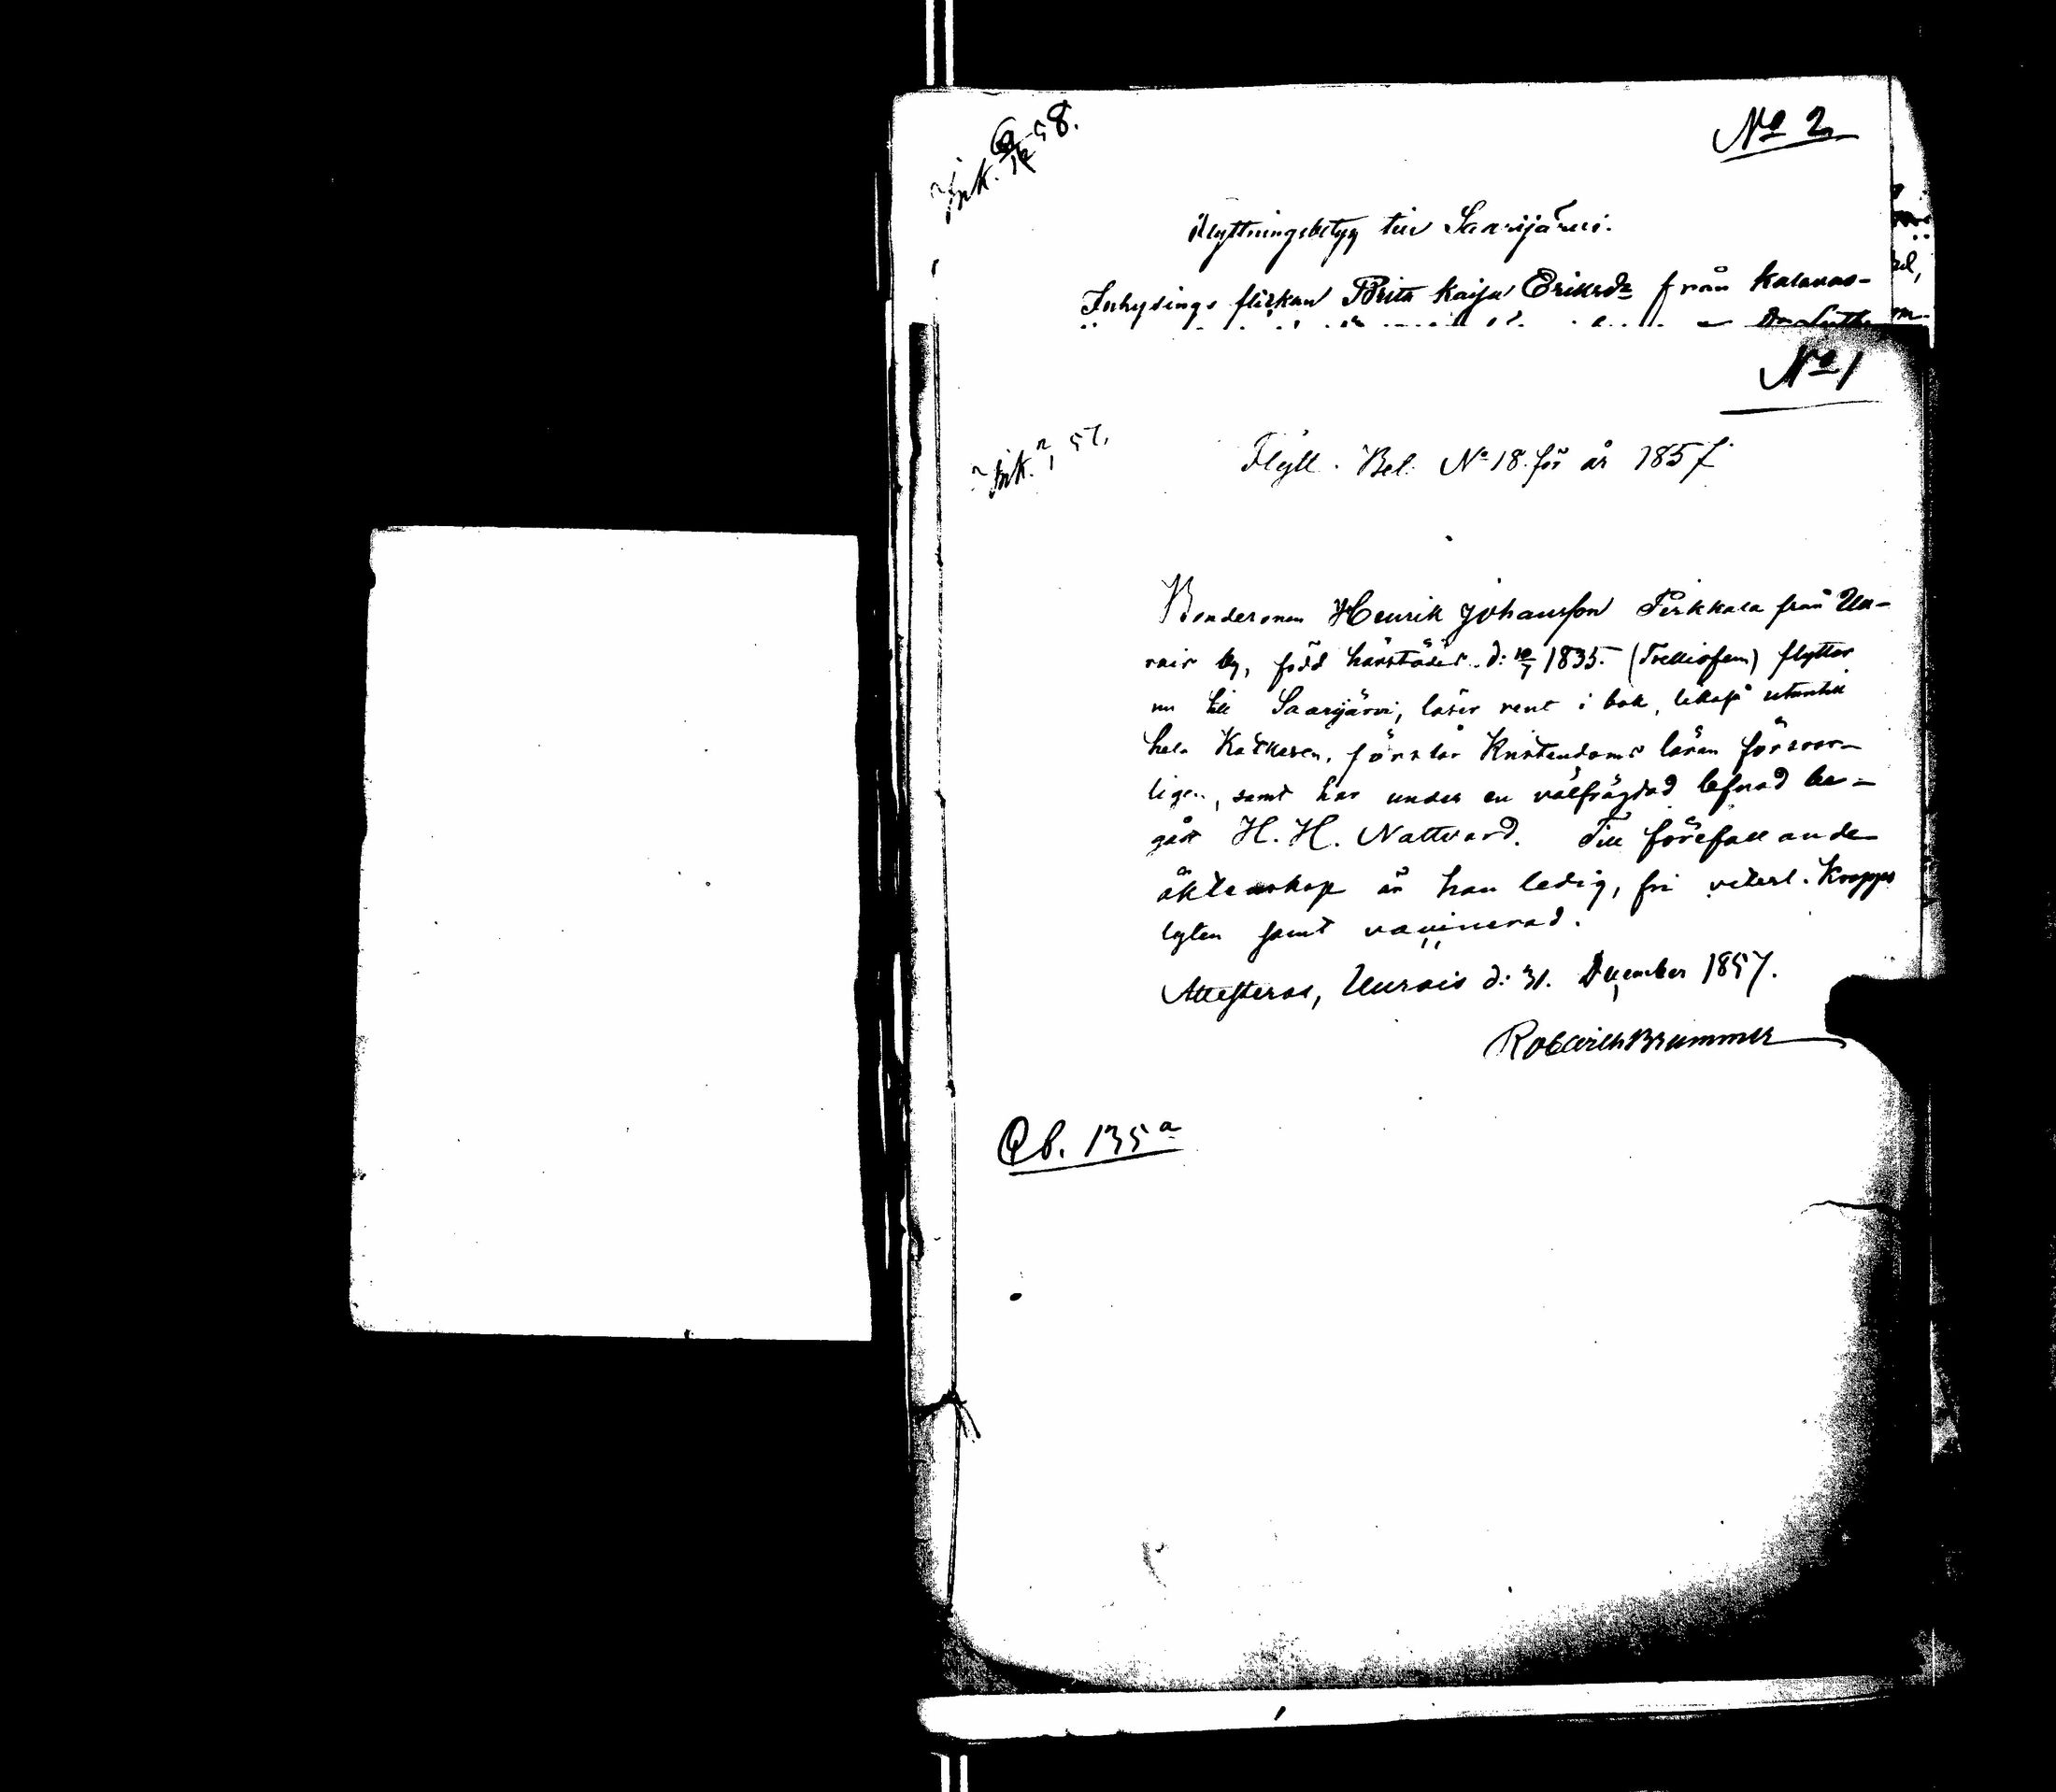 No 2
Ink. 58.
Flyttningsbetyg till Saarijärvi.
Inhysings flickan Brita Kaisa Eriksdr från Kalavas-
No 1
Ink. 57.
Flytt. Bet. No 18 för år 1857
Bondesonen Henrik Johansson Pirkkala från Uu-
rais by, född härstädes d: 10/7 1835 (Trettiofem) flyttar
nu till Saarijärvi, läser rent i bok, likaså utantill
hela Katkesen, förstår Kristendoms läran försvar-
ligen, samt har under en välfrägdad lefnad be-
gått H. H. Nattvard. Till förefallande
äktenskap är han ledig, fri veterl. Kropps
lyten samt vaccinerad.
Attesteras, Uurais d: 31. December 1857.
Rob Brummer
Cb. 135 a